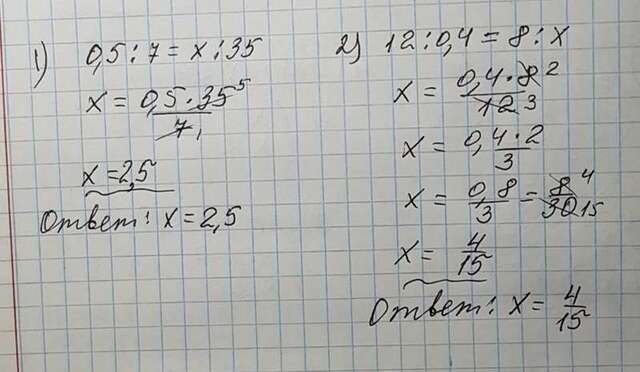 1) 0,5 : 7 = x : 35
x = 0,5 · 35 5 / 7 1
x = 2,5
Ответ: x = 2,5
2) 12 : 0,4 = 8 : x
x = 0,4 · 8 2 / 12 3
x = 0,4 · 2 / 3
x = 0,8 / 3 = 8 4 / 30 15
x = 4 / 15
Ответ: x = 4 / 15